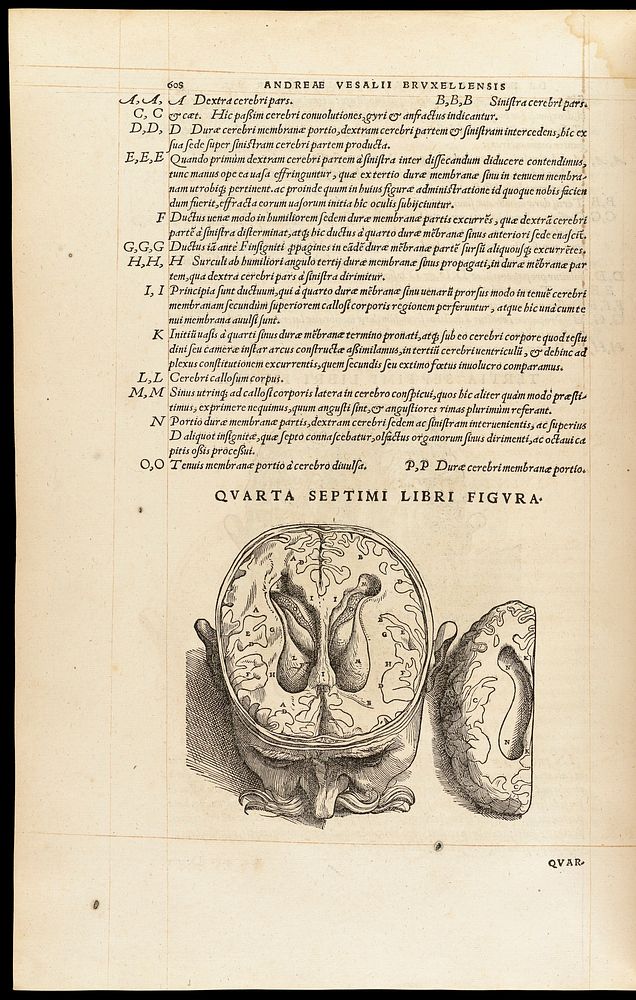 608 ANDREAE VESALII BRVXELLENSIS
A, A, A Dextra cerebri pars. B,B,B Sinistra cerebri pars.
C, C & cæt. Hic passim cerebri conuolutiones, gyri & anfractus indicantur.
D,D, D Duræ cerebri membranæ portio, dextram cerebri partem & sinistram intercedens, hic ex
sua sede super sinistram cerebri partem producta.
E,E,E Quando primùm dextram cerebri partem à sinistra inter dissecandum diducere contendimus,
tunc manus ope ea uasa effringuntur, quæ ex tertio duræ membranæ sinu in tenuem membra-
nam utrobiq; pertinent. ac proinde quum in huius figuræ administratione id quoque nobis facien
dum fuerit, effracta eorum uasorum initia hic oculis subijciuntur.
F Ductus uenæ modo in humiliorem sedem duræ membranæ partis excurrēs, quæ dextrā cerebri
partē à sinistra disterminat, atq; hic ductus à quarto duræ mēbranæ sinus anteriori sede enascit.
G,G,G Ductus iā ante F insigniti propagines in eādē duræ mēbranæ partē sursū aliquousq; excurrētes.
H,H, H Surculi ab humiliori angulo tertij duræ membranæ sinus propagati, in duræ mēbranæ par
tem, qua dextra cerebri pars à sinistra dirimitur.
I, I Principia sunt ductuum, qui à quarto duræ mēbranæ sinu uenarū prorsus modo in tenuē cerebri
membranam secundùm superiorem callosi corporis regionem perferuntur, atque hic unà cum te
nui membrana auulsi sunt.
K Initiū uasis à quarti sinus duræ mēbranæ termino pronati, atq; sub eo cerebri corpore quod testu
dini seu cameræ instar arcus constructæ assimilamus, in tertiū cerebri uentriculū, & dehinc ad
plexus constitutionem excurrentis, quem secundis seu extimo fœtus inuolucro comparamus.
L,L Cerebri callosum corpus.
M,M Sinus utrinq; ad callosi corporis latera in cerebro conspicui, quos hic aliter quàm modò præsti-
timus, exprimere nequimus, quum angusti sint, & angustiores rimas plurimùm referant.
N Portio duræ membranæ partis, dextram cerebri sedem ac sinistram interuenientis, ac superius
D aliquot insignitæ, quæ septo connascebatur, olfactus organorum sinus dirimenti, ac octaui ca
pitis ossis processui.
O,O Tenuis membranæ portio à cerebro diuulsa. P,P Duræ cerebri membranæ portio.
QVARTA SEPTIMI LIBRI FIGVRA.
QVAR-